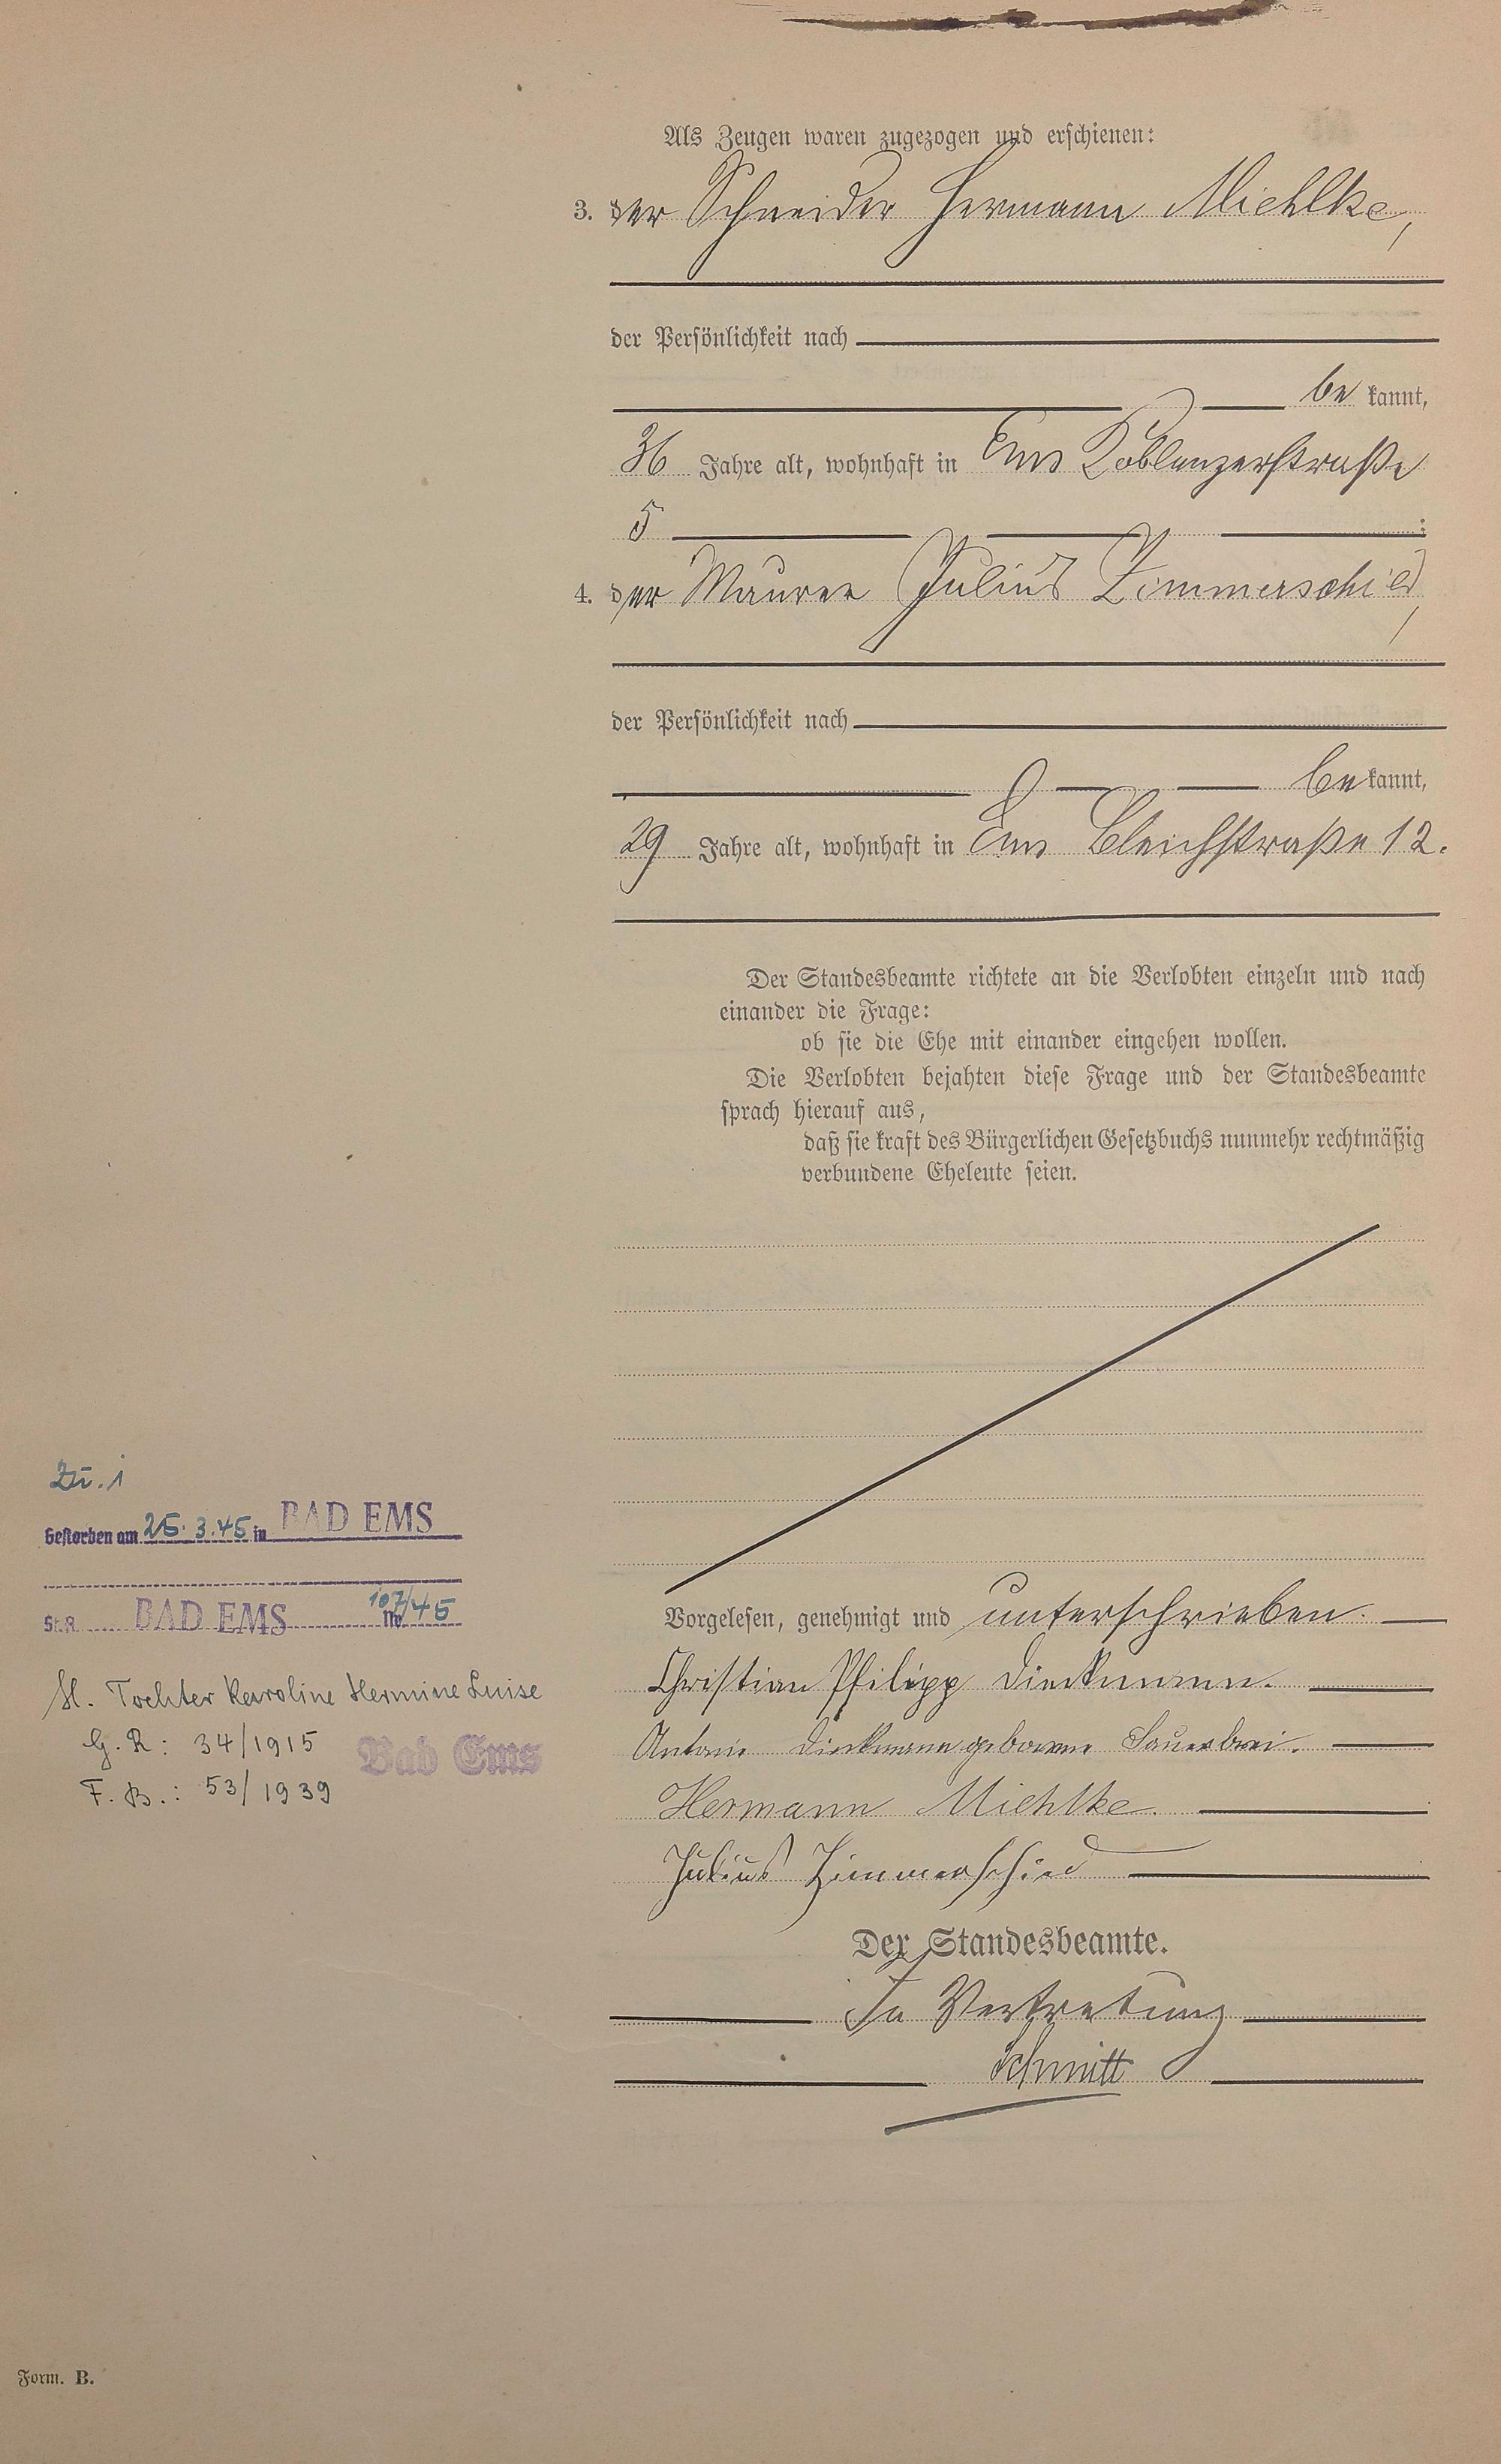 Als Zeugen waren zugezogen und erschienen:
3. der Schneider Hermann Miehlke,
der Persönlichkeit nach
be kannt,
36 Jahre alt, wohnhaft in Ems Koblenzerstraße
5 ;
4. der Maurer Julius Zimmerschied,
der Persönlichkeit nach
be kannt,
29 Jahre alt, wohnhaft in Ems Bleichstraße 12.
Der Standesbeamte richtete an die Verlobten einzeln und nach
einander die Frage:
ob sie die Ehe mit einander eingehen wollen.
Die Verlobten bejahten diese Frage und der Standesbeamte
sprach hierauf aus,
daß sie kraft des Bürgerlichen Gesetzbuchs nunmehr rechtmäßig
verbundene Eheleute seien.
Zu. 1
Gestorben am 25.3.45 in BAD EMS
St.A. BAD EMS No 107/45
Hl. Tochter Karoline Hermine Luise
G. R: 34/1915 Bad Ems
F. B.: 53/1939
Vorgelesen, genehmigt und unterschrieben.
Christian Philipp Dieckmann.
Antonie Dieckmann geborene Sauerbrei.
Hermann Miehlke.
Julius Zimmerschied
Der Standesbeamte.
In Vertretung
Schmitt
Form. B.